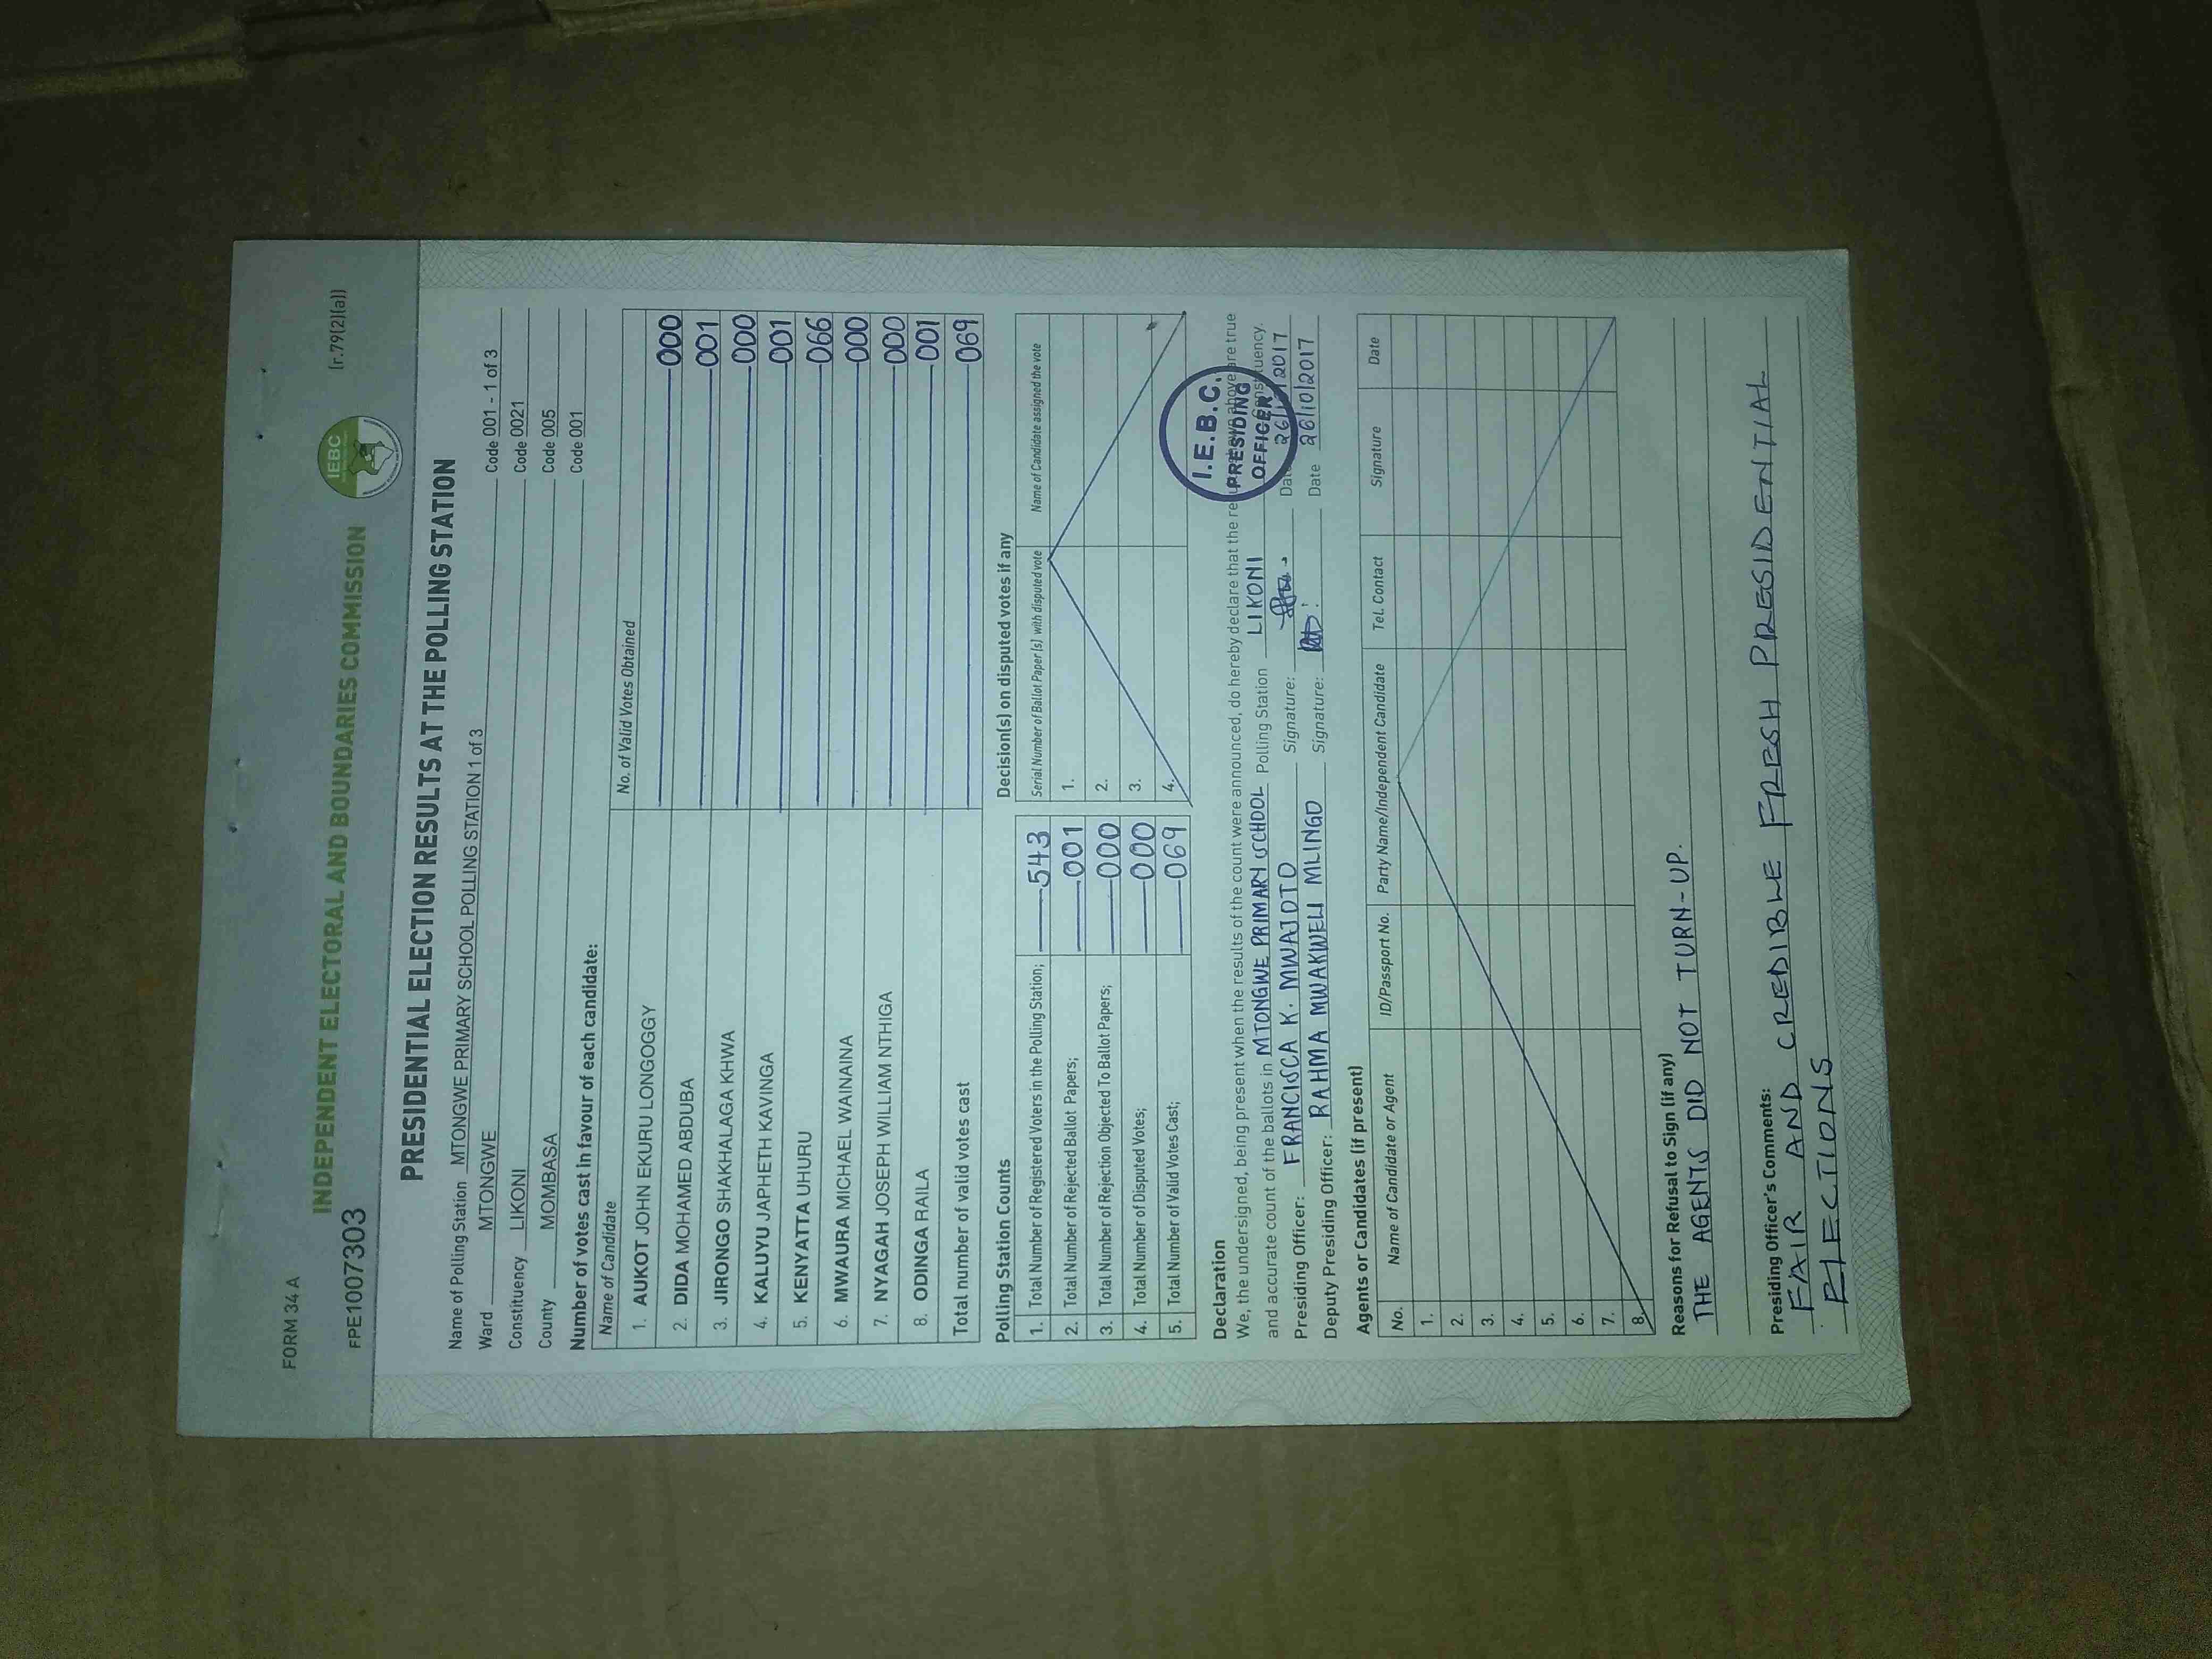 FORM 34 A
INDEPENDENT ELECTORAL AND BOUNDARIES COMMISSION
IEBC
(r.79(2)(a))
FPE1007303
PRESIDENTIAL ELECTION RESULTS AT THE POLLING STATION
Name of Polling Station MTONGWE PRIMARY SCHOOL POLLING STATION 1 of 3
Ward MTONGWE Code 001 - 1 of 3
Constituency LIKONI Code 0021
County MOMBASA Code 005
Code 001
Number of votes cast in favour of each candidate:
Name of Candidate No. of Valid Votes Obtained
1. AUKOT JOHN EKURU LONGOGGY 000
2. DIDA MOHAMED ABDUBA 001
3. JIRONGO SHAKHALAGA KHWA 000
4. KALUYU JAPHETH KAVINGA 001
5. KENYATTA UHURU 066
6. MWAURA MICHAEL WAINAINA 000
7. NYAGAH JOSEPH WILLIAM NTHIGA 000
8. ODINGA RAILA 001
Total number of valid votes cast 069
Polling Station Counts
1. Total Number of Registered Voters in the Polling Station; 543
2. Total Number of Rejected Ballot Papers; 001
3. Total Number of Rejection Objected To Ballot Papers; 000
4. Total Number of Disputed Votes; 000
5. Total Number of Valid Votes Cast; 069
Decision(s) on disputed votes if any
Serial Number of Ballot Paper(s) with disputed vote Name of Candidate assigned the vote
1.
2.
3.
4.
Declaration
We, the undersigned, being present when the results of the count were announced, do hereby declare that the are true
and accurate count of the ballots in MTONGWE PRIMARY SCHOOL Polling Station LIKONI
Presiding Officer: FRANCISCA K. MWAJOTO Signature: Date 2017
Deputy Presiding Officer: RAHMA MWAKWELI MLINGO Signature: Date 26/10/2017
I.E.B.C.
PRESIDING
OFFICER
Agents or Candidates (if present)
No. Name of Candidate or Agent ID/Passport No. Party Name/Independent Candidate Tel. Contact Signature Date
1.
2.
3.
4.
5.
6.
7.
8.
Reasons for Refusal to Sign (if any)
THE AGENTS DID NOT TURN-UP.
Presiding Officer's Comments:
FAIR AND CREDIBLE FRESH PRESIDENTIAL
ELECTIONS